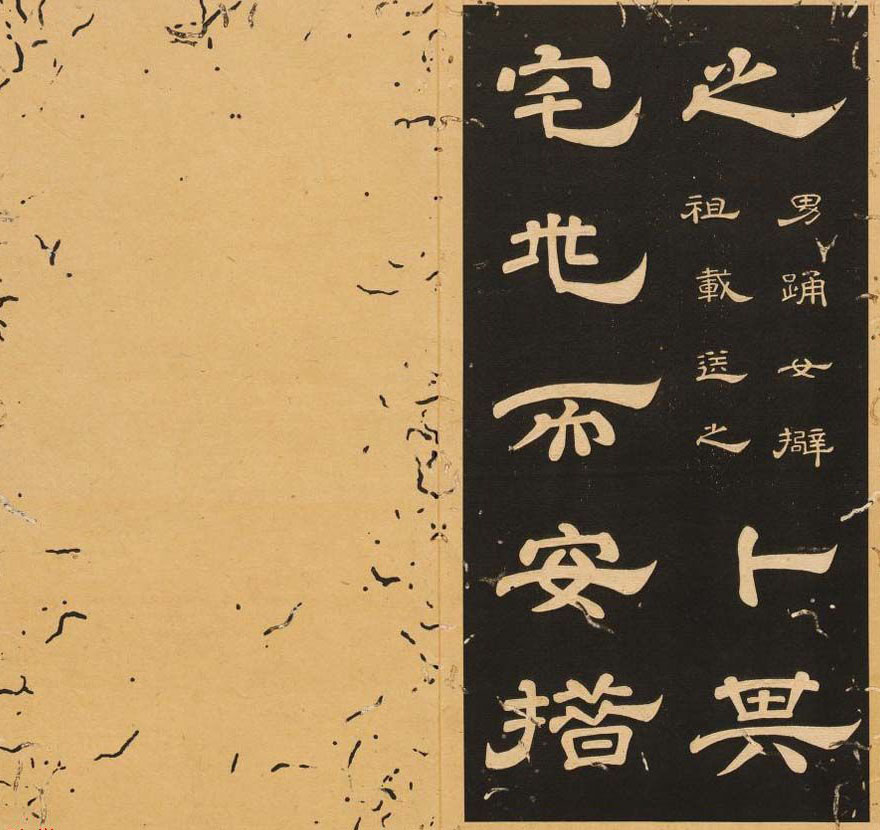 之男踊女擗祖載送之卜其
宅兆而安措